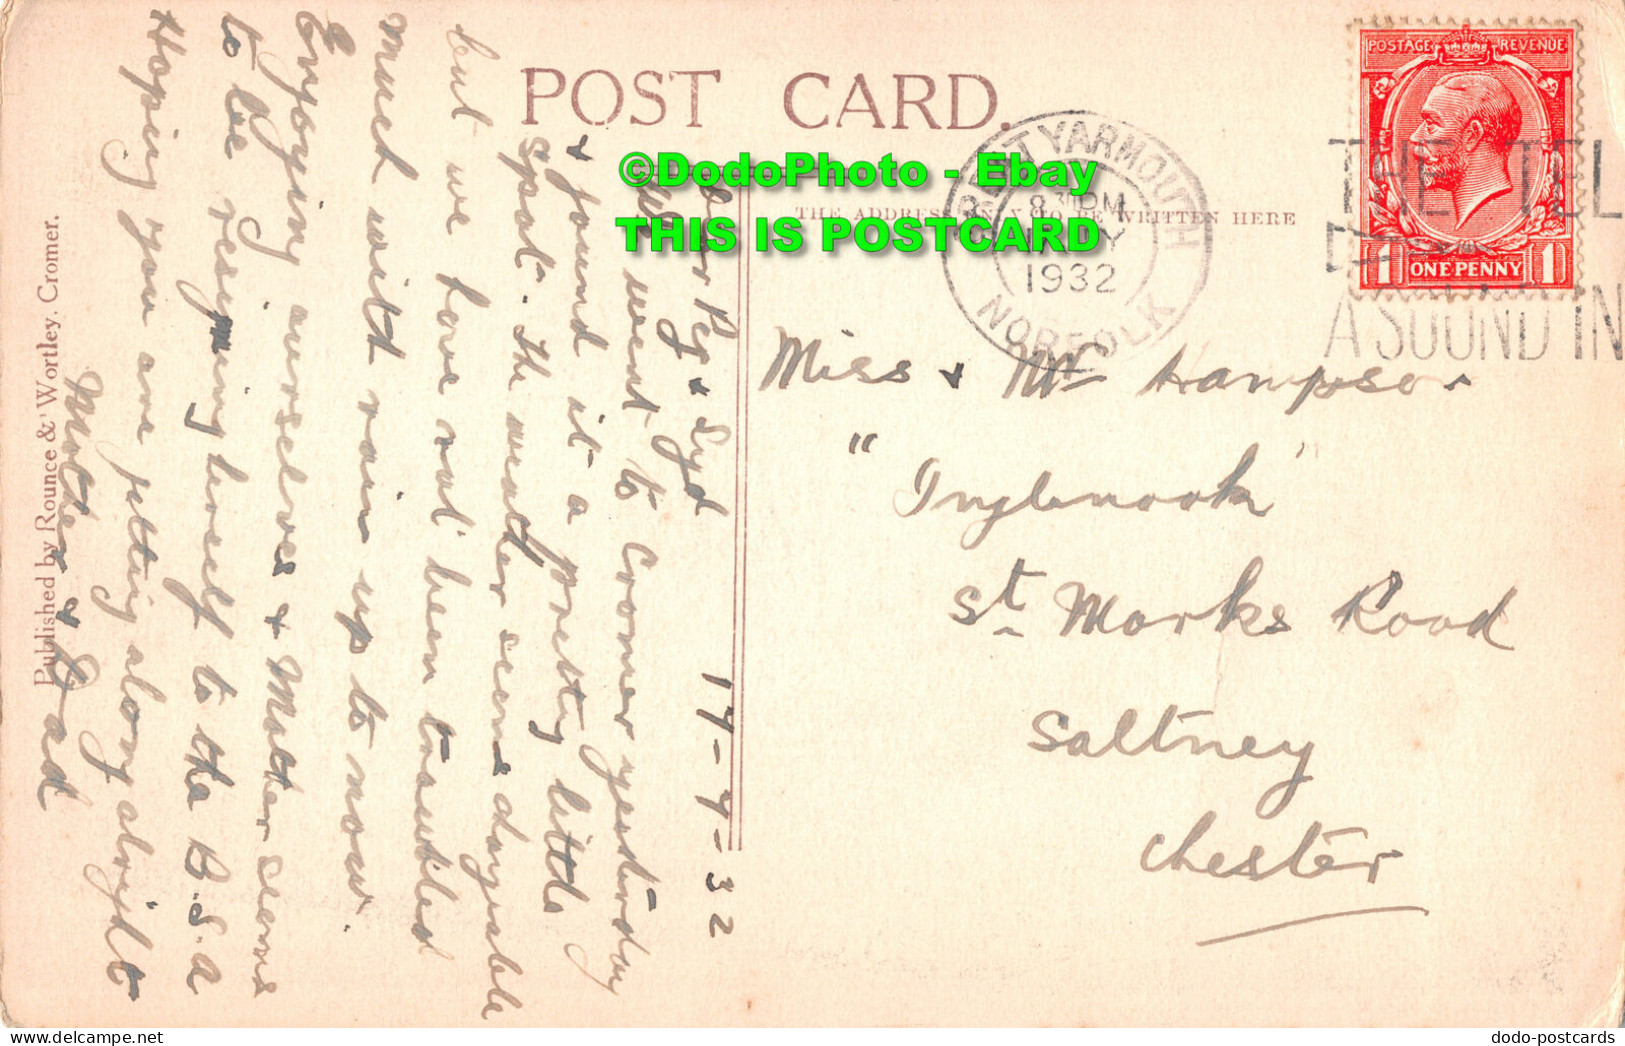 POST CARD.
THE ADDRESS ONLY TO BE WRITTEN HERE
©DodoPhoto - Ebay
THIS IS POSTCARD
GREAT YARMOUTH
8 PM
1932
NORFOLK
POSTAGE REVENUE
1 ONE PENNY 1
THE TEL
A SOUND IN
17-7-32
Dear Peg & Syd
We went to Cromer yesterday
& found it a pretty little
spot. The weather seems dayable
but we have not been troubled
much with rain up to now.
Enjoying ourselves & Mother seems
to be resigning herself to the B.S.a
Hoping you are getting along alright
Mother & Dad
Miss & Mr Hampson
"Inglenook"
St Marks Road
Saltney
Chester
Published by Rounce & Wortley. Cromer.
dodo-postcards